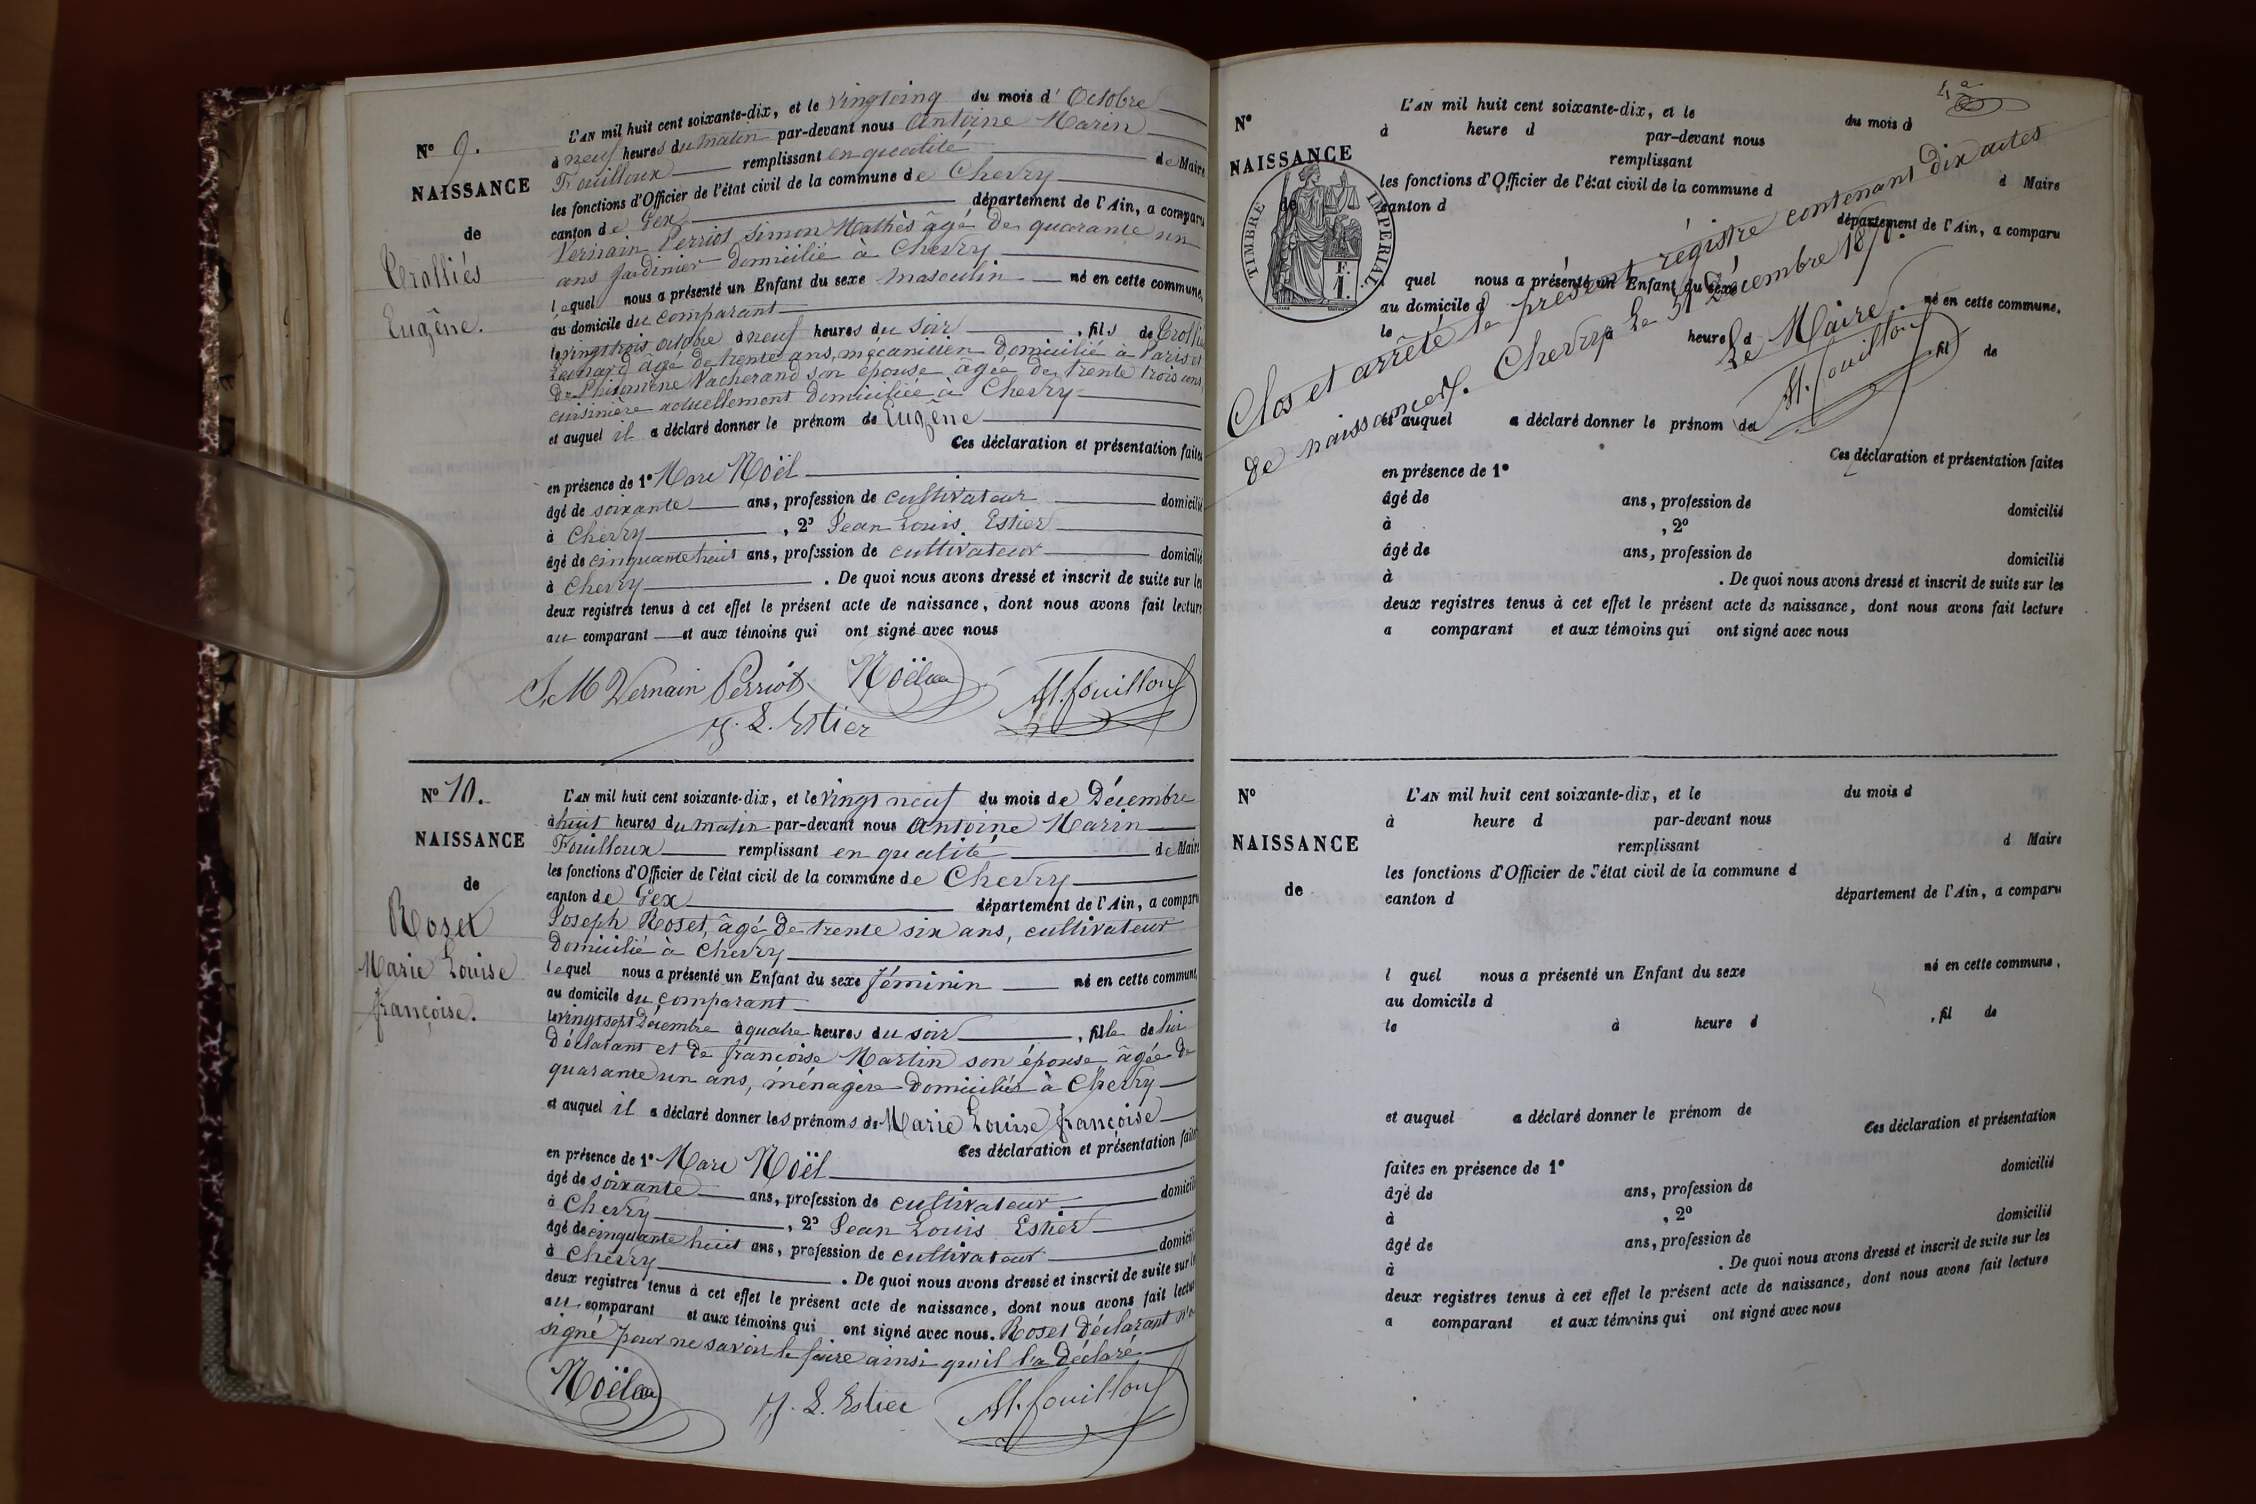 N° 9.
NAISSANCE
de
Crolliés
Eugêne.
L'AN mil huit cent soixante-dix, et le vingtcinq du mois d'Octobre
à neuf heures du matin par-devant nous Antoine Marin
Fouilloux remplissant en qualité de Maire
les fonctions d'Officier de l'état civil de la commune de Chevry
canton de Gex département de l'Ain, a comparu
Vernain Perriot Simon Mathès âgé de quarante un
ans jardinier domicilié à Chevry
lequel nous a présenté un Enfant du sexe masculin né en cette commune,
au domicile du comparant
le vingt trois octobre à neuf heures du soir, fils de Crollié
Léonard âgé de trente ans, mécanicien domicilié à Paris et
de Philomène Vacherand son épouse âgée de trente trois ans
cuisinière actuellement domiciliée à Chevry
et auquel il a déclaré donner le prénom de Eugêne
Ces déclaration et présentation faites
en présence de 1° Marc Noël
âgé de soixante ans, profession de cultivateur domicilié
à Chevry, 2° Jean Louis Estier
âgé de cinquante huit ans, profession de cultivateur domicilié
à Chevry. De quoi nous avons dressé et inscrit de suite sur les
deux registres tenus à cet effet le présent acte de naissance, dont nous avons fait lecture
au comparant et aux témoins qui ont signé avec nous
S. M Vernain Perriot Noël M. fouilloux
J. L. Estier
N° 10.
NAISSANCE
de
Roset
Marie Louise
françoise.
L'AN mil huit cent soixante-dix, et le vingt neuf du mois de Décembre
à huit heures du matin par-devant nous Antoine Marin
Fouilloux remplissant en qualité de Maire
les fonctions d'Officier de l'état civil de la commune de Chevry
canton de Gex département de l'Ain, a comparu
Joseph Roset, âgé de trente six ans, cultivateur
domicilié à Chevry
lequel nous a présenté un Enfant du sexe féminin né en cette commune,
au domicile du comparant
le vingt sept Décembre à quatre heures du soir, fille de lui
déclarant et de françoise Martin son épouse âgée de
quarante un ans, ménagère domiciliés à Chevry
et auquel il a déclaré donner les prénoms de Marie Louise françoise
Ces déclaration et présentation faites
en présence de 1° Marc Noël
âgé de soixante ans, profession de cultivateur domicilié
à Chevry, 2° Jean Louis Estier
âgé de cinquante huit ans, profession de cultivateur domicilié
à Chevry. De quoi nous avons dressé et inscrit de suite sur les
deux registres tenus à cet effet le présent acte de naissance, dont nous avons fait lecture
au comparant et aux témoins qui ont signé avec nous. Roset Déclarant n'a
signé pour ne savoir le faire ainsi qu'il l'a déclaré
Noël J. L. Estier M. fouilloux
N°
NAISSANCE
de
TIMBRE IMPERIAL
F.
1.
L'AN mil huit cent soixante-dix, et le du mois d
à heure d par-devant nous
remplissant d Maire
les fonctions d'Officier de l'état civil de la commune d
canton d département de l'Ain, a comparu
l quel nous a présenté un Enfant du sexe né en cette commune,
au domicile d
le à heure d , fil de
Clos et arrêté le présent régistre contenant dix actes
de naissances. Chevry le 31 Décembre 1870.
Le Maire.
M. fouilloux
et auquel a déclaré donner le prénom de
Ces déclaration et présentation faites
en présence de 1°
âgé de ans, profession de domicilié
à , 2°
âgé de ans, profession de domicilié
à . De quoi nous avons dressé et inscrit de suite sur les
deux registres tenus à cet effet le présent acte de naissance, dont nous avons fait lecture
a comparant et aux témoins qui ont signé avec nous
N°
NAISSANCE
de
L'AN mil huit cent soixante-dix, et le du mois d
à heure d par-devant nous
remplissant d Maire
les fonctions d'Officier de l'état civil de la commune d
canton d département de l'Ain, a comparu
l quel nous a présenté un Enfant du sexe né en cette commune,
au domicile d
le à heure d , fil de
et auquel a déclaré donner le prénom de
Ces déclaration et présentation
faites en présence de 1°
âgé de ans, profession de domicilié
à , 2°
âgé de ans, profession de domicilié
à . De quoi nous avons dressé et inscrit de suite sur les
deux registres tenus à cet effet le présent acte de naissance, dont nous avons fait lecture
a comparant et aux témoins qui ont signé avec nous